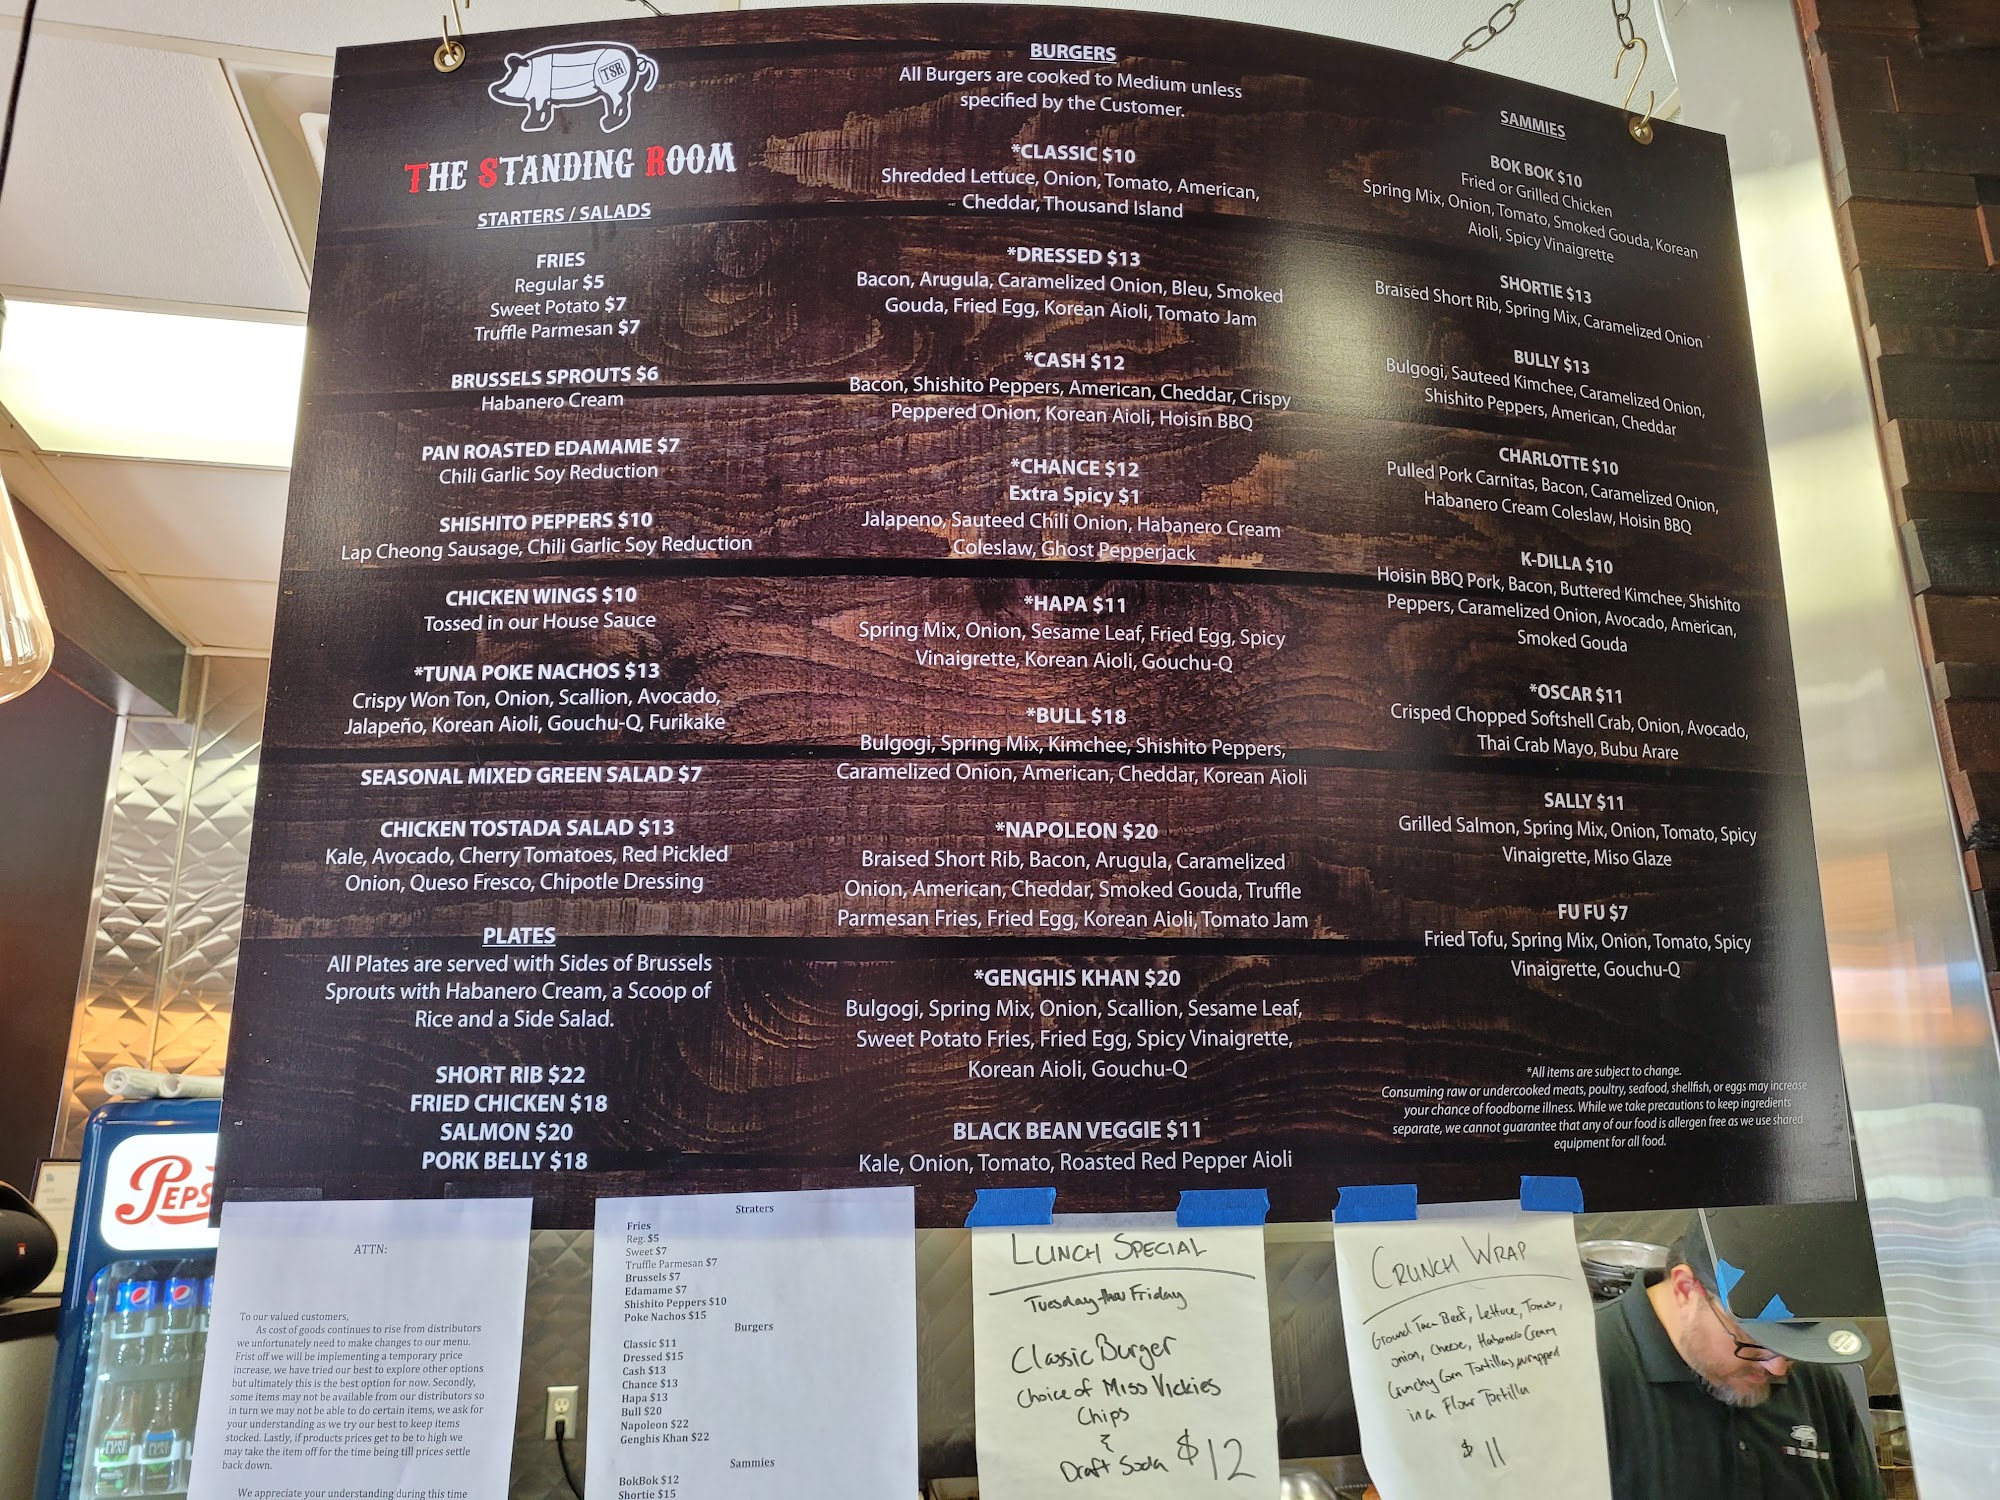 TSR
THE STANDING ROOM
STARTERS / SALADS
FRIES
Regular $5
Sweet Potato $7
Truffle Parmesan $7
BRUSSELS SPROUTS $6
Habanero Cream
PAN ROASTED EDAMAME $7
Chili Garlic Soy Reduction
SHISHITO PEPPERS $10
Lap Cheong Sausage, Chili Garlic Soy Reduction
CHICKEN WINGS $10
Tossed in our House Sauce
*TUNA POKE NACHOS $13
Crispy Won Ton, Onion, Scallion, Avocado,
Jalapeño, Korean Aioli, Gouchu-Q, Furikake
SEASONAL MIXED GREEN SALAD $7
CHICKEN TOSTADA SALAD $13
Kale, Avocado, Cherry Tomatoes, Red Pickled
Onion, Queso Fresco, Chipotle Dressing
PLATES
All Plates are served with Sides of Brussels
Sprouts with Habanero Cream, a Scoop of
Rice and a Side Salad.
SHORT RIB $22
FRIED CHICKEN $18
SALMON $20
PORK BELLY $18
BURGERS
All Burgers are cooked to Medium unless
specified by the Customer.
*CLASSIC $10
Shredded Lettuce, Onion, Tomato, American,
Cheddar, Thousand Island
*DRESSED $13
Bacon, Arugula, Caramelized Onion, Bleu, Smoked
Gouda, Fried Egg, Korean Aioli, Tomato Jam
*CASH $12
Bacon, Shishito Peppers, American, Cheddar, Crispy
Peppered Onion, Korean Aioli, Hoisin BBQ
*CHANCE $12
Extra Spicy $1
Jalapeno, Sauteed Chili Onion, Habanero Cream
Coleslaw, Ghost Pepperjack
*HAPA $11
Spring Mix, Onion, Sesame Leaf, Fried Egg, Spicy
Vinaigrette, Korean Aioli, Gouchu-Q
*BULL $18
Bulgogi, Spring Mix, Kimchee, Shishito Peppers,
Caramelized Onion, American, Cheddar, Korean Aioli
*NAPOLEON $20
Braised Short Rib, Bacon, Arugula, Caramelized
Onion, American, Cheddar, Smoked Gouda, Truffle
Parmesan Fries, Fried Egg, Korean Aioli, Tomato Jam
*GENGHIS KHAN $20
Bulgogi, Spring Mix, Onion, Scallion, Sesame Leaf,
Sweet Potato Fries, Fried Egg, Spicy Vinaigrette,
Korean Aioli, Gouchu-Q
BLACK BEAN VEGGIE $11
Kale, Onion, Tomato, Roasted Red Pepper Aioli
SAMMIES
BOK BOK $10
Fried or Grilled Chicken
Spring Mix, Onion, Tomato, Smoked Gouda, Korean
Aioli, Spicy Vinaigrette
SHORTIE $13
Braised Short Rib, Spring Mix, Caramelized Onion
BULLY $13
Bulgogi, Sauteed Kimchee, Caramelized Onion,
Shishito Peppers, American, Cheddar
CHARLOTTE $10
Pulled Pork Carnitas, Bacon, Caramelized Onion,
Habanero Cream Coleslaw, Hoisin BBQ
K-DILLA $10
Hoisin BBQ Pork, Bacon, Buttered Kimchee, Shishito
Peppers, Caramelized Onion, Avocado, American,
Smoked Gouda
*OSCAR $11
Crisped Chopped Softshell Crab, Onion, Avocado,
Thai Crab Mayo, Bubu Arare
SALLY $11
Grilled Salmon, Spring Mix, Onion, Tomato, Spicy
Vinaigrette, Miso Glaze
FU FU $7
Fried Tofu, Spring Mix, Onion, Tomato, Spicy
Vinaigrette, Gouchu-Q
*All items are subject to change.
Consuming raw or undercooked meats, poultry, seafood, shellfish, or eggs may increase
your chance of foodborne illness. While we take precautions to keep ingredients
separate, we cannot guarantee that any of our food is allergen free as we use shared
equipment for all food.
PEPS
PURE
LEAF
PURE
LEAF
ATTN:
To our valued customers,
As cost of goods continues to rise from distributors
we unfortunately need to make changes to our menu.
Frist off we will be implementing a temporary price
increase, we have tried our best to explore other options
but ultimately this is the best option for now. Secondly,
some items may not be available from our distributors so
in turn we may not be able to do certain items, we ask for
your understanding as we try our best to keep items
stocked. Lastly, if products prices get to be to high we
may take the item off for the time being till prices settle
back down.
We appreciate your understanding during this time
Straters
Fries
Reg. $5
Sweet $7
Truffle Parmesan $7
Brussels $7
Edamame $7
Shishito Peppers $10
Poke Nachos $15
Burgers
Classic $11
Dressed $15
Cash $13
Chance $13
Hapa $13
Bull $20
Napoleon $22
Genghis Khan $22
Sammies
BokBok $12
Shortie $15
LUNCH SPECIAL
Tuesday thru Friday
Classic Burger
Choice of Miss Vickies
Chips
&
Draft Soda $12
CRUNCH WRAP
Ground Taco Beef, Lettuce, Tomato,
onion, Cheese, Habanero Cream
Crunchy Corn Tortillas, wrapped
in a Flour Tortilla
$11